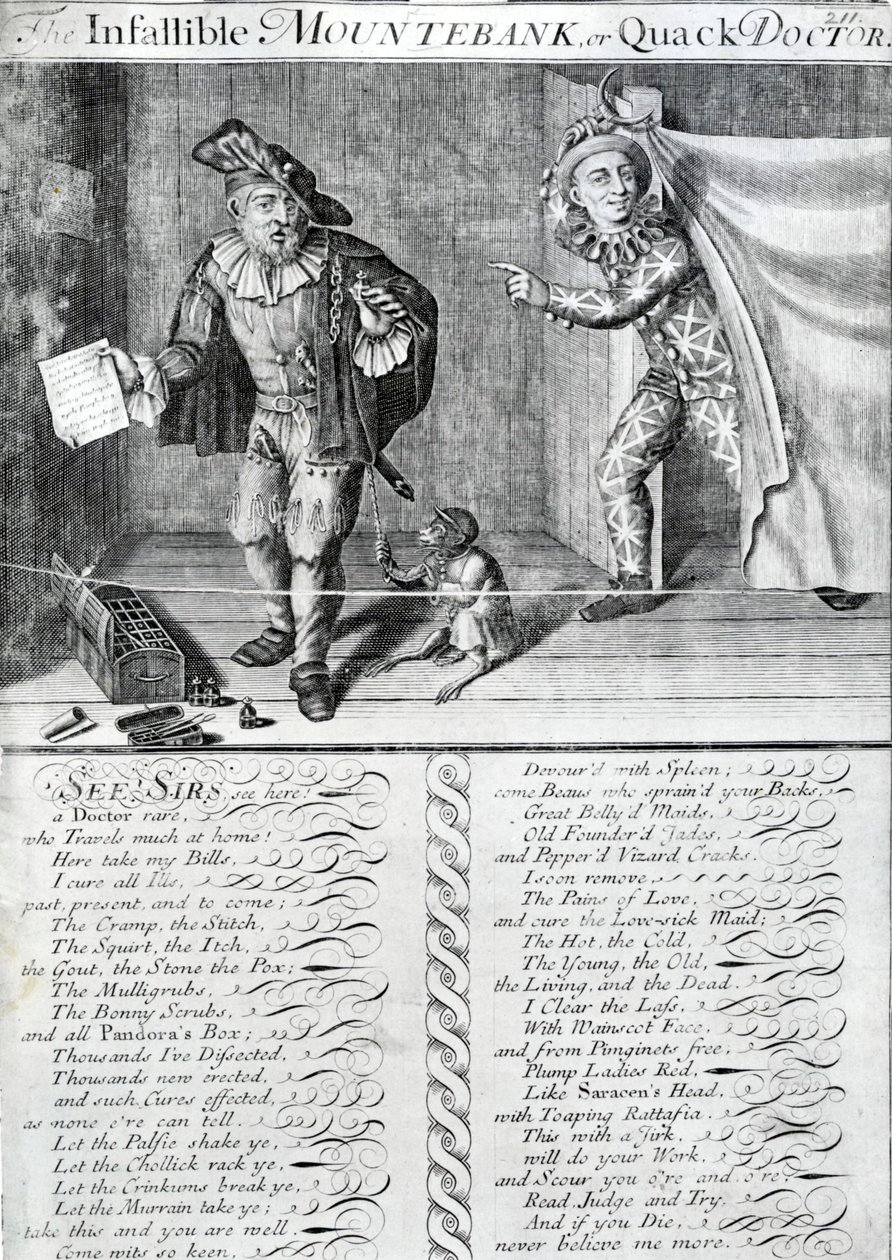 211.
The Infallible MOUNTEBANK, or Quack DOCTOR.
SEE, SIRS, see here!
a Doctor rare,
who Travels much at home!
Here take my Bills,
I cure all Ills,
past, present, and to come;
The Cramp, the Stitch,
The Squirt, the Itch,
the Gout, the Stone the Pox;
The Mulligrubs,
The Bonny Scrubs,
and all Pandora's Box;
Thousands I've Dissected,
Thousands new erected,
and such Cures effected,
as none e're can tell.
Let the Palsie shake ye,
Let the Chollick rack ye,
Let the Crinkums break ye,
Let the Murrain take ye;
take this and you are well.
Come wits so keen,
Devour'd with Spleen;
come Beaus who sprain'd your Backs,
Great Belly'd Maids,
Old Founder'd Jades,
and Pepper'd Vizard Cracks.
I soon remove,
The Pains of Love,
and cure the Love-sick Maid;
The Hot, the Cold,
The Young, the Old,
the Living, and the Dead.
I Clear the Lass,
With Wainscot Face,
and from Pimginets free;
Plump Ladies Red,
Like Saracen's Head,
with Toaping Rattafia.
This with a Jirk,
will do your Work,
and Scour you o're and o're,
Read, Judge and Try,
And if you Die,
never believe me more.